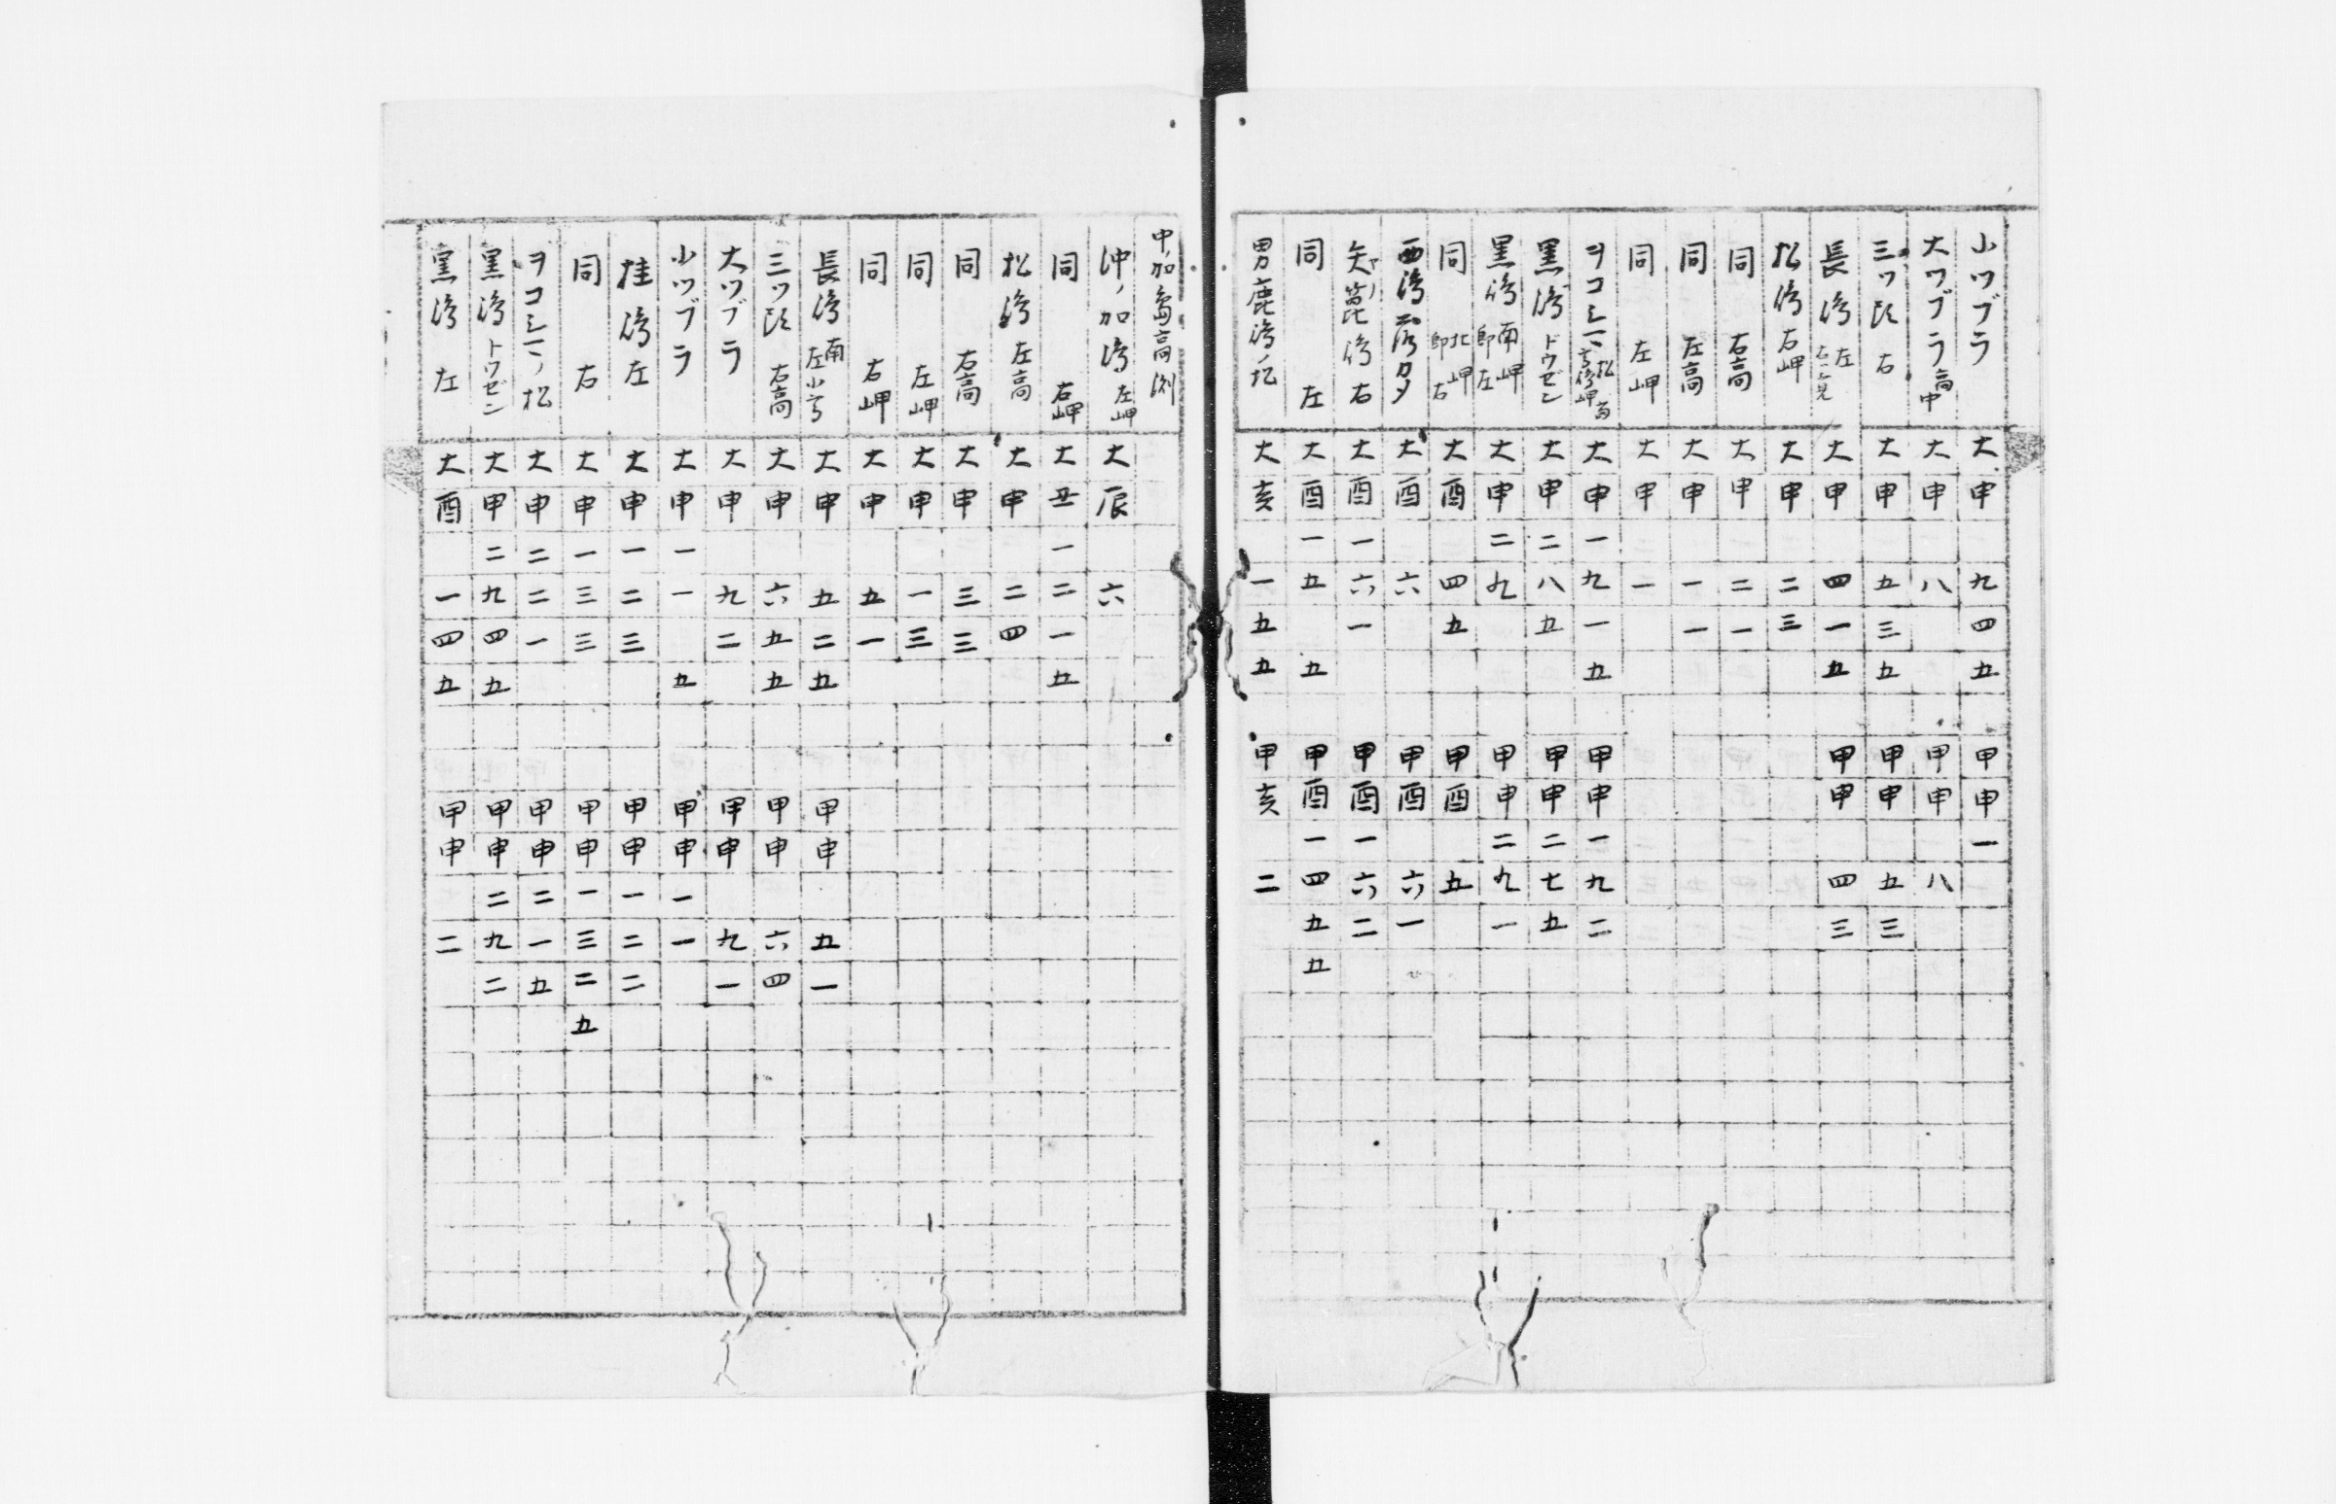 小ツブラ 大申 九四五 甲申一
大ツブラ 高中 大申 八 甲申 八
三ツ 右 大申 五三五 甲申 五三
長嶋 左 大申 四一五 甲申 四三
松嶋 右岬 大申 二三
同 右高 大申 二一
同 左高 大申 一一
同 左岬 大申 一
ヲコシ 松 大申一九一五 甲申一九二
黒嶋 ドウゼン 大申二八五 甲申二七五
黒嶋 南岬 即左 大申二九 甲申二九一
同 北岬 即右 大酉 四五 甲酉 五
西嶋 カタ 大酉 六 甲酉 六一
矢ノ箆嶋 右 大酉一六一 甲酉一六二
同 左 大酉一五 五 甲酉一四五五
男鹿嶋ノ 大亥 一五五 甲亥 二
中ノ加嶋高渕
沖ノ加嶋 左岬 大辰 六
同 右岬 大丑一二一五
松嶋 左高 大申 二四
同 右高 大申 三三
同 左岬 大申 一三
同 右岬 大申 五一
長嶋 南 左小 大申 五二五 甲申 五一
三ツ 右高 大申 六五五 甲申 六四
大ツブラ 大申 九二 甲申 九一
小ツブラ 大申一一 五 甲申一一
桂嶋 左 大申一二三 甲申一二二
同 右 大申一三三 甲申一三二五
ヲコシ 松 大申二二一 甲申二一五
黒嶋 トウゼン 大申二九四五 甲申二九二
黒嶋 左 大酉 一四五 甲申 二